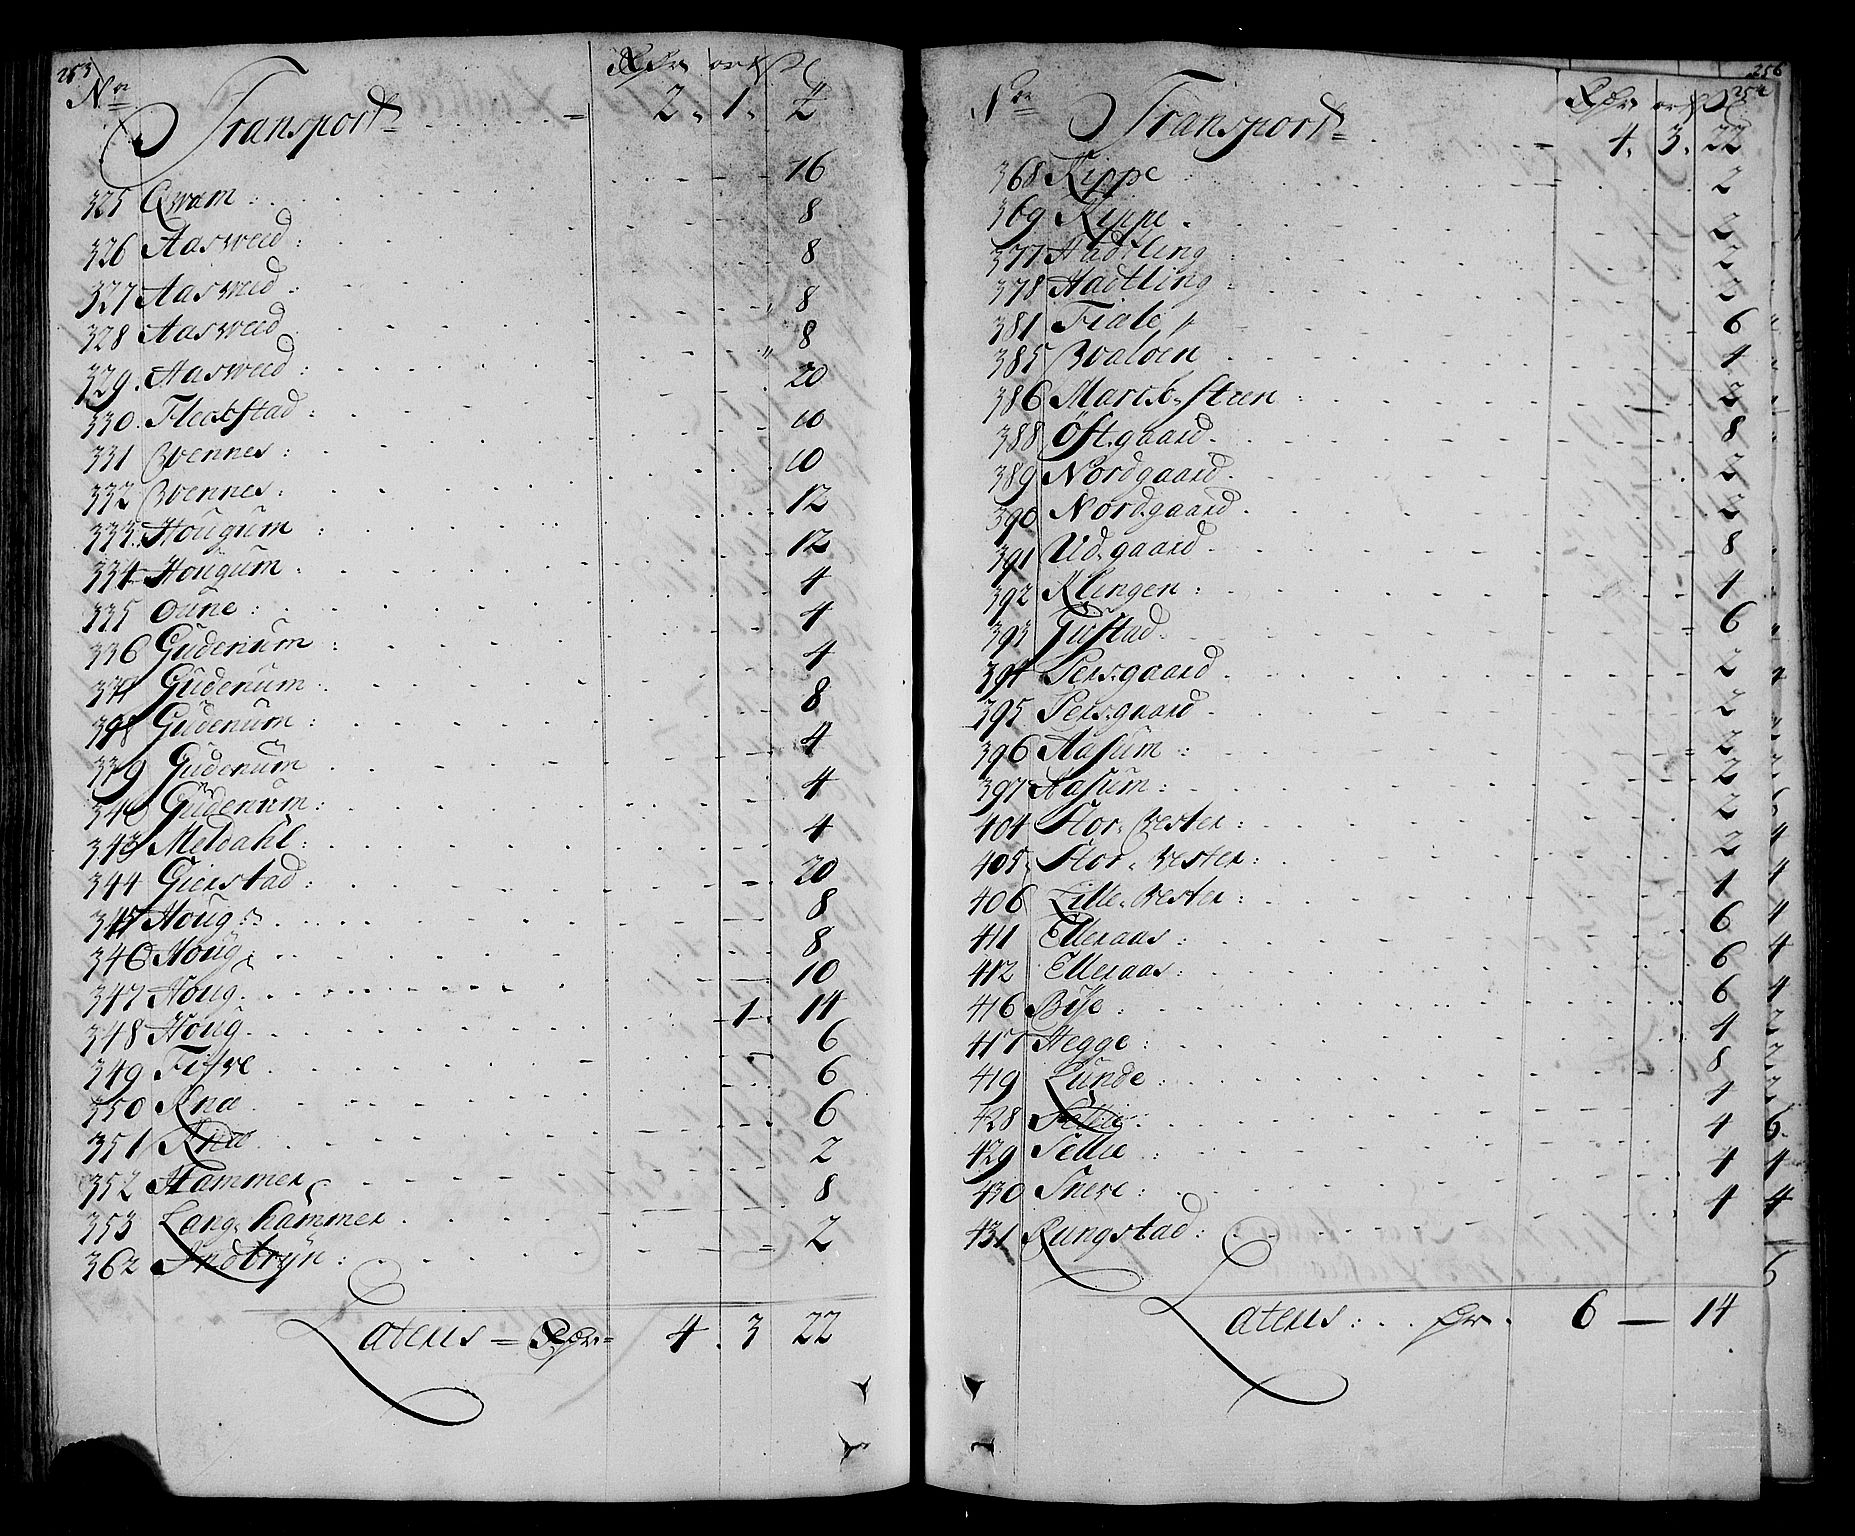 253
No Rdr ort ß
Transport 2. 1. 4
325 Qvam 16
326 Aasweed 8
327 Aasweed 8
328 Aasweed 8
329. Aasweed 8
330 Fleckstad 20
331 Qvennes 10
332 Qvennes 10
333 Hougum 12
334 Hougum 12
335 Oune 4
336 Gudenum 4
337 Gudenum 4
338 Gudenum 8
339 Gudenum 4
340 Gudenum 4
343 Meldahl 4
344 Gierstad 20
345 Houg 8
346 Houg 8
347 Houg 10
348 Houg 1 14
349 Fiskve 6
350 Kna 6
351 Kna 6
352 Hammer 2
353 Lang. hammer 8
362 Indbryn 2
Lateris = Rdr 4. 3 22
256
254
No Rdr ort ß
Transport 4. 3. 22
368 Kippe 2
369 Kippe 2
377 Hadtling 2
378 Hadtling 2
381 Fiale 6
385 Qvaloen 4
386 Marck. Steen 2
388 Öst. gaard 8
389 Nordgaard 2
390 Nordgaard 2
391 Ud. gaard 8
392 Klingen 4
393 Gustad 6
394 Pers. gaard 2
395 Pers. gaard 2
396 Aasum 2
397 Aasum 2
404 Stor. Vester 2
405 Stor. Vester 2
406 Lille. Vester 4
411 Elleraas 6
412 Elleraas 6
416 Bøle 6
417 Hegge 4
419 Lunde 8
428 Sellie 4
429 Sellie 4
430 Sneve 4
431 Rungstad 4
Lateris 6 — 14